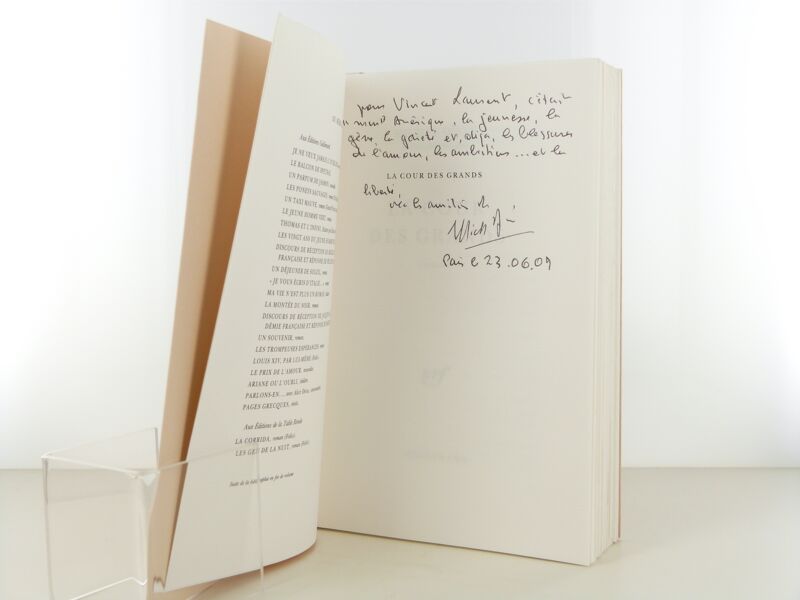 Aux Éditions Gallimard
JE NE VEUX JAMAIS L'
LE BALCON DE SPETSAI
UN PARFUM DE JASMIN
LES PONEYS SAUVAGES, roman
UN TAXI MAUVE, roman
LE JEUNE HOMME VERT
THOMAS ET L'INFINI
LES VINGT ANS DU JEUNE HOMME
DISCOURS DE RÉCEPTION DE
FRANÇAISE ET RÉPONSE DE
UN DÉJEUNER DE SOLEIL, roman
« JE VOUS ÉCRIS D'ITALIE... »
MA VIE N'EST PLUS UN ROMAN
LA MONTÉE DU SOIR, roman
DISCOURS DE RÉCEPTION DE JACQUES
DÉMIE FRANÇAISE ET RÉPONSE DE
UN SOUVENIR, roman
LES TROMPEUSES ESPÉRANCES
LOUIS XIV, PAR LUI-MÊME
LE PRIX DE L'AMOUR, nouvelles
ARIANE OU L'OUBLI, théâtre
PARLONS-EN..., avec Alice Déon, conversation
PAGES GRECQUES, récits
Aux Éditions de la Table Ronde
LA CORRIDA, roman (Folio)
LES GENS DE LA NUIT, roman (Folio)
Suite de la bibliographie en fin de volume
pour Vincent Laurent, c'était
Amérique, la jeunesse, la
gêne, la gaieté et, déjà, les blessures
de l'amour, les ambitions... et la
LA COUR DES GRANDS
liberté
avec les amitiés de
Paris le 23.06.09